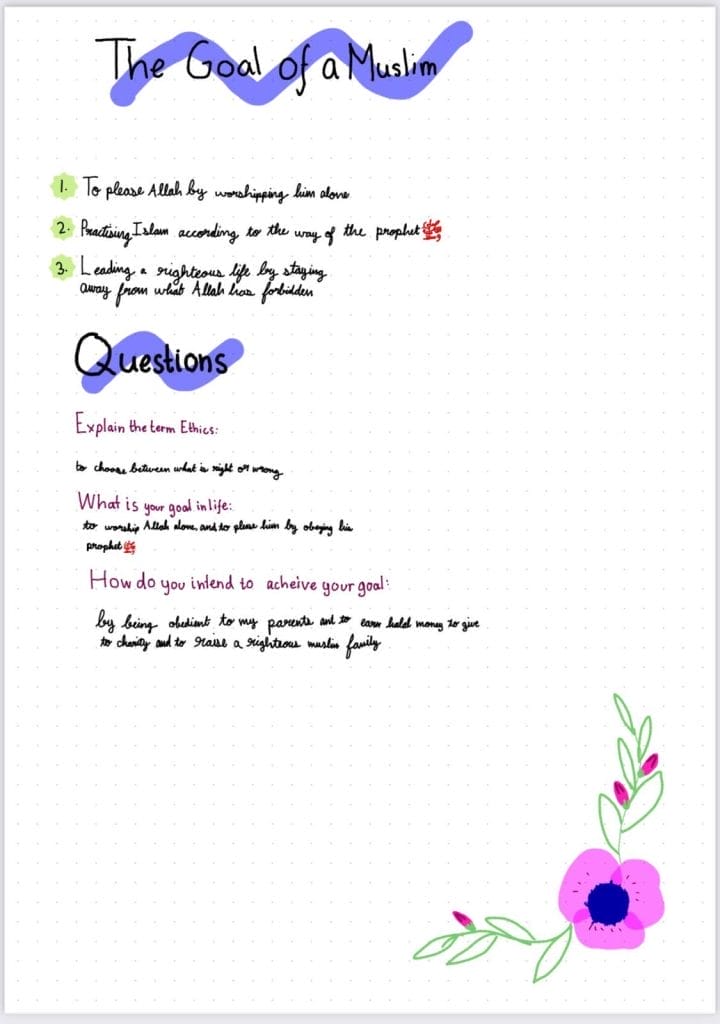 The Goal of a Muslim
1. To please Allah by worshipping him alone
2. Practising Islam according to the way of the prophet ﷺ
3. Leading a righteous life by staying
away from what Allah has forbidden
Questions
Explain the term Ethics:
to choose between what is right or wrong
What is your goal in life:
to worship Allah alone, and to please him by obeying his
prophet ﷺ
How do you intend to acheive your goal:
by being obedient to my parents and to earn halal money to give
to charity and to raise a righteous muslim family